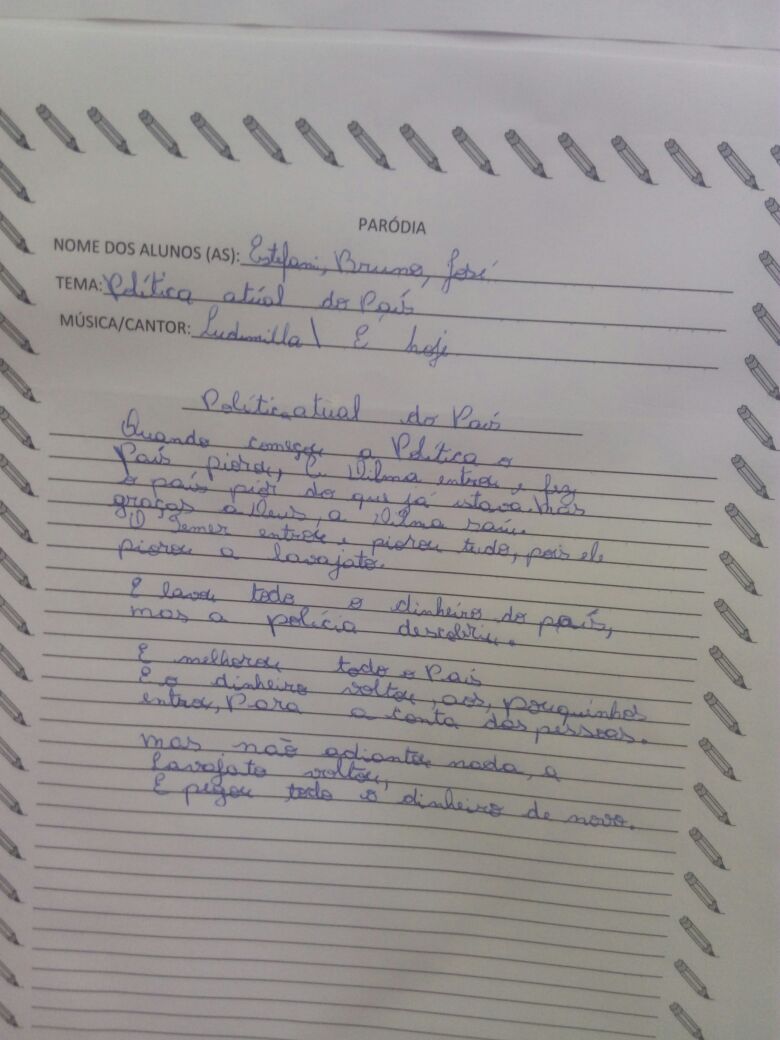 PARÓDIA
NOME DOS ALUNOS (AS): Estefani, Bruno, José
TEMA: Política atúal do País
MÚSICA/CANTOR: Ludmilla \ E hoje
Política atual do País
Quando começou a Política o
País piorou, E Dilma entrou e fez
o país piór do que já estava. Mas
graças a Deus, a Dilma saiu.
O Temer entrou e piorou tudo, pois ele
piorou a lavajato.
E lavou todo o dinheiro do país,
mas a polícia descobriu.
E melhorou todo o País
E o dinheiro voltou, aos, pouquinhos
entrou, Para a conta das pessoas.
mas não adiantou nada, a
lavajato voltou,
E pegou todo o dinheiro de novo.